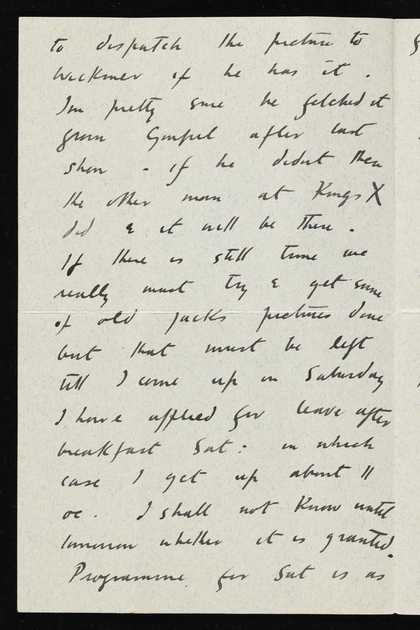 to dispatch the picture to
if he has it.
I'm pretty sure he fetched it
from Goupil after last
show - if he didnt then
the other man at Kings X
did & it will be there.
If there is still time we
really must try & get some
of old Jacks pictures done
but that must be left
till I come up on Saturday
I have applied for leave after
breakfast Sat: in which
case I get up about 11
oc. I shall not know until
tomorrow whether it is granted.
Programme for Sat is as